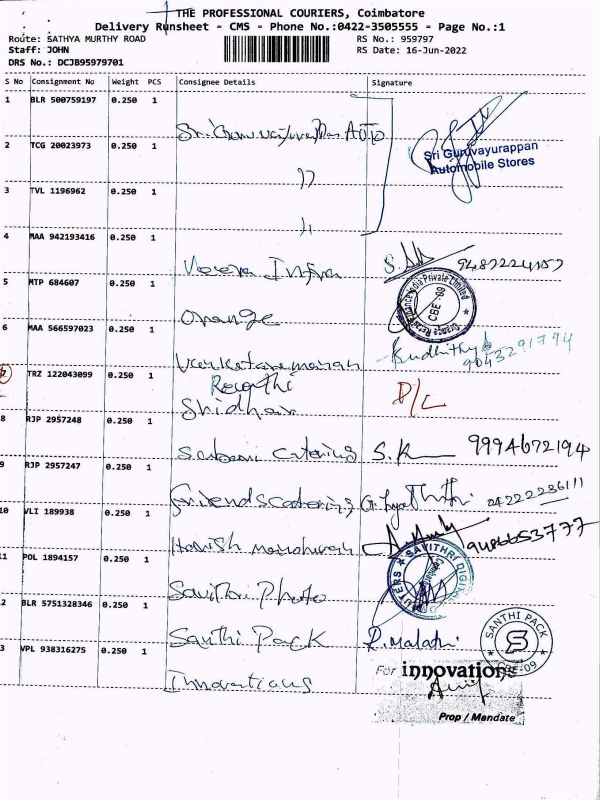 THE PROFESSIONAL COURIERS, Coimbatore
Delivery Runsheet - CMS - Phone No.:0422-3505555 - Page No.:1
Route: SATHYA MURTHY ROAD
RS No.: 959797
Staff: JOHN
RS Date: 16-Jun-2022
DRS No.: DCJB95979701
S No Consignment No Weight PCS Consignee Details Signature
1 BLR 500759197 0.250 1
Sri Guruvayurappan Auto
Sri Guruvayurappan
Automobile Stores
2 TCG 20023973 0.250 1
3 TVL 1196962 0.250 1
4 MAA 942193416 0.250 1
Veera Infra
5 MTP 684607 0.250 1
Orange
CBE-09
6 MAA 566597023 0.250 1
Venkataramanan
9043291794
7 TRZ 122043099 0.250 1
Revathi
Shidhar
D/L
8 RJP 2957248 0.250 1
Catering S.K 9994672194
9 RJP 2957247 0.250 1
Friends Catering 04222236111
10 VLI 189938 0.250 1
Harish
11 POL 1894157 0.250 1
Savithri Photo
SAVITHRI DIGITAL
12 BLR 5751328346 0.250 1
Santhi Pack R. Malathi
SANTHI PACK
S
CBE-09
13 VPL 938316275 0.250 1
Innovations
For innovations
Prop / Mandate